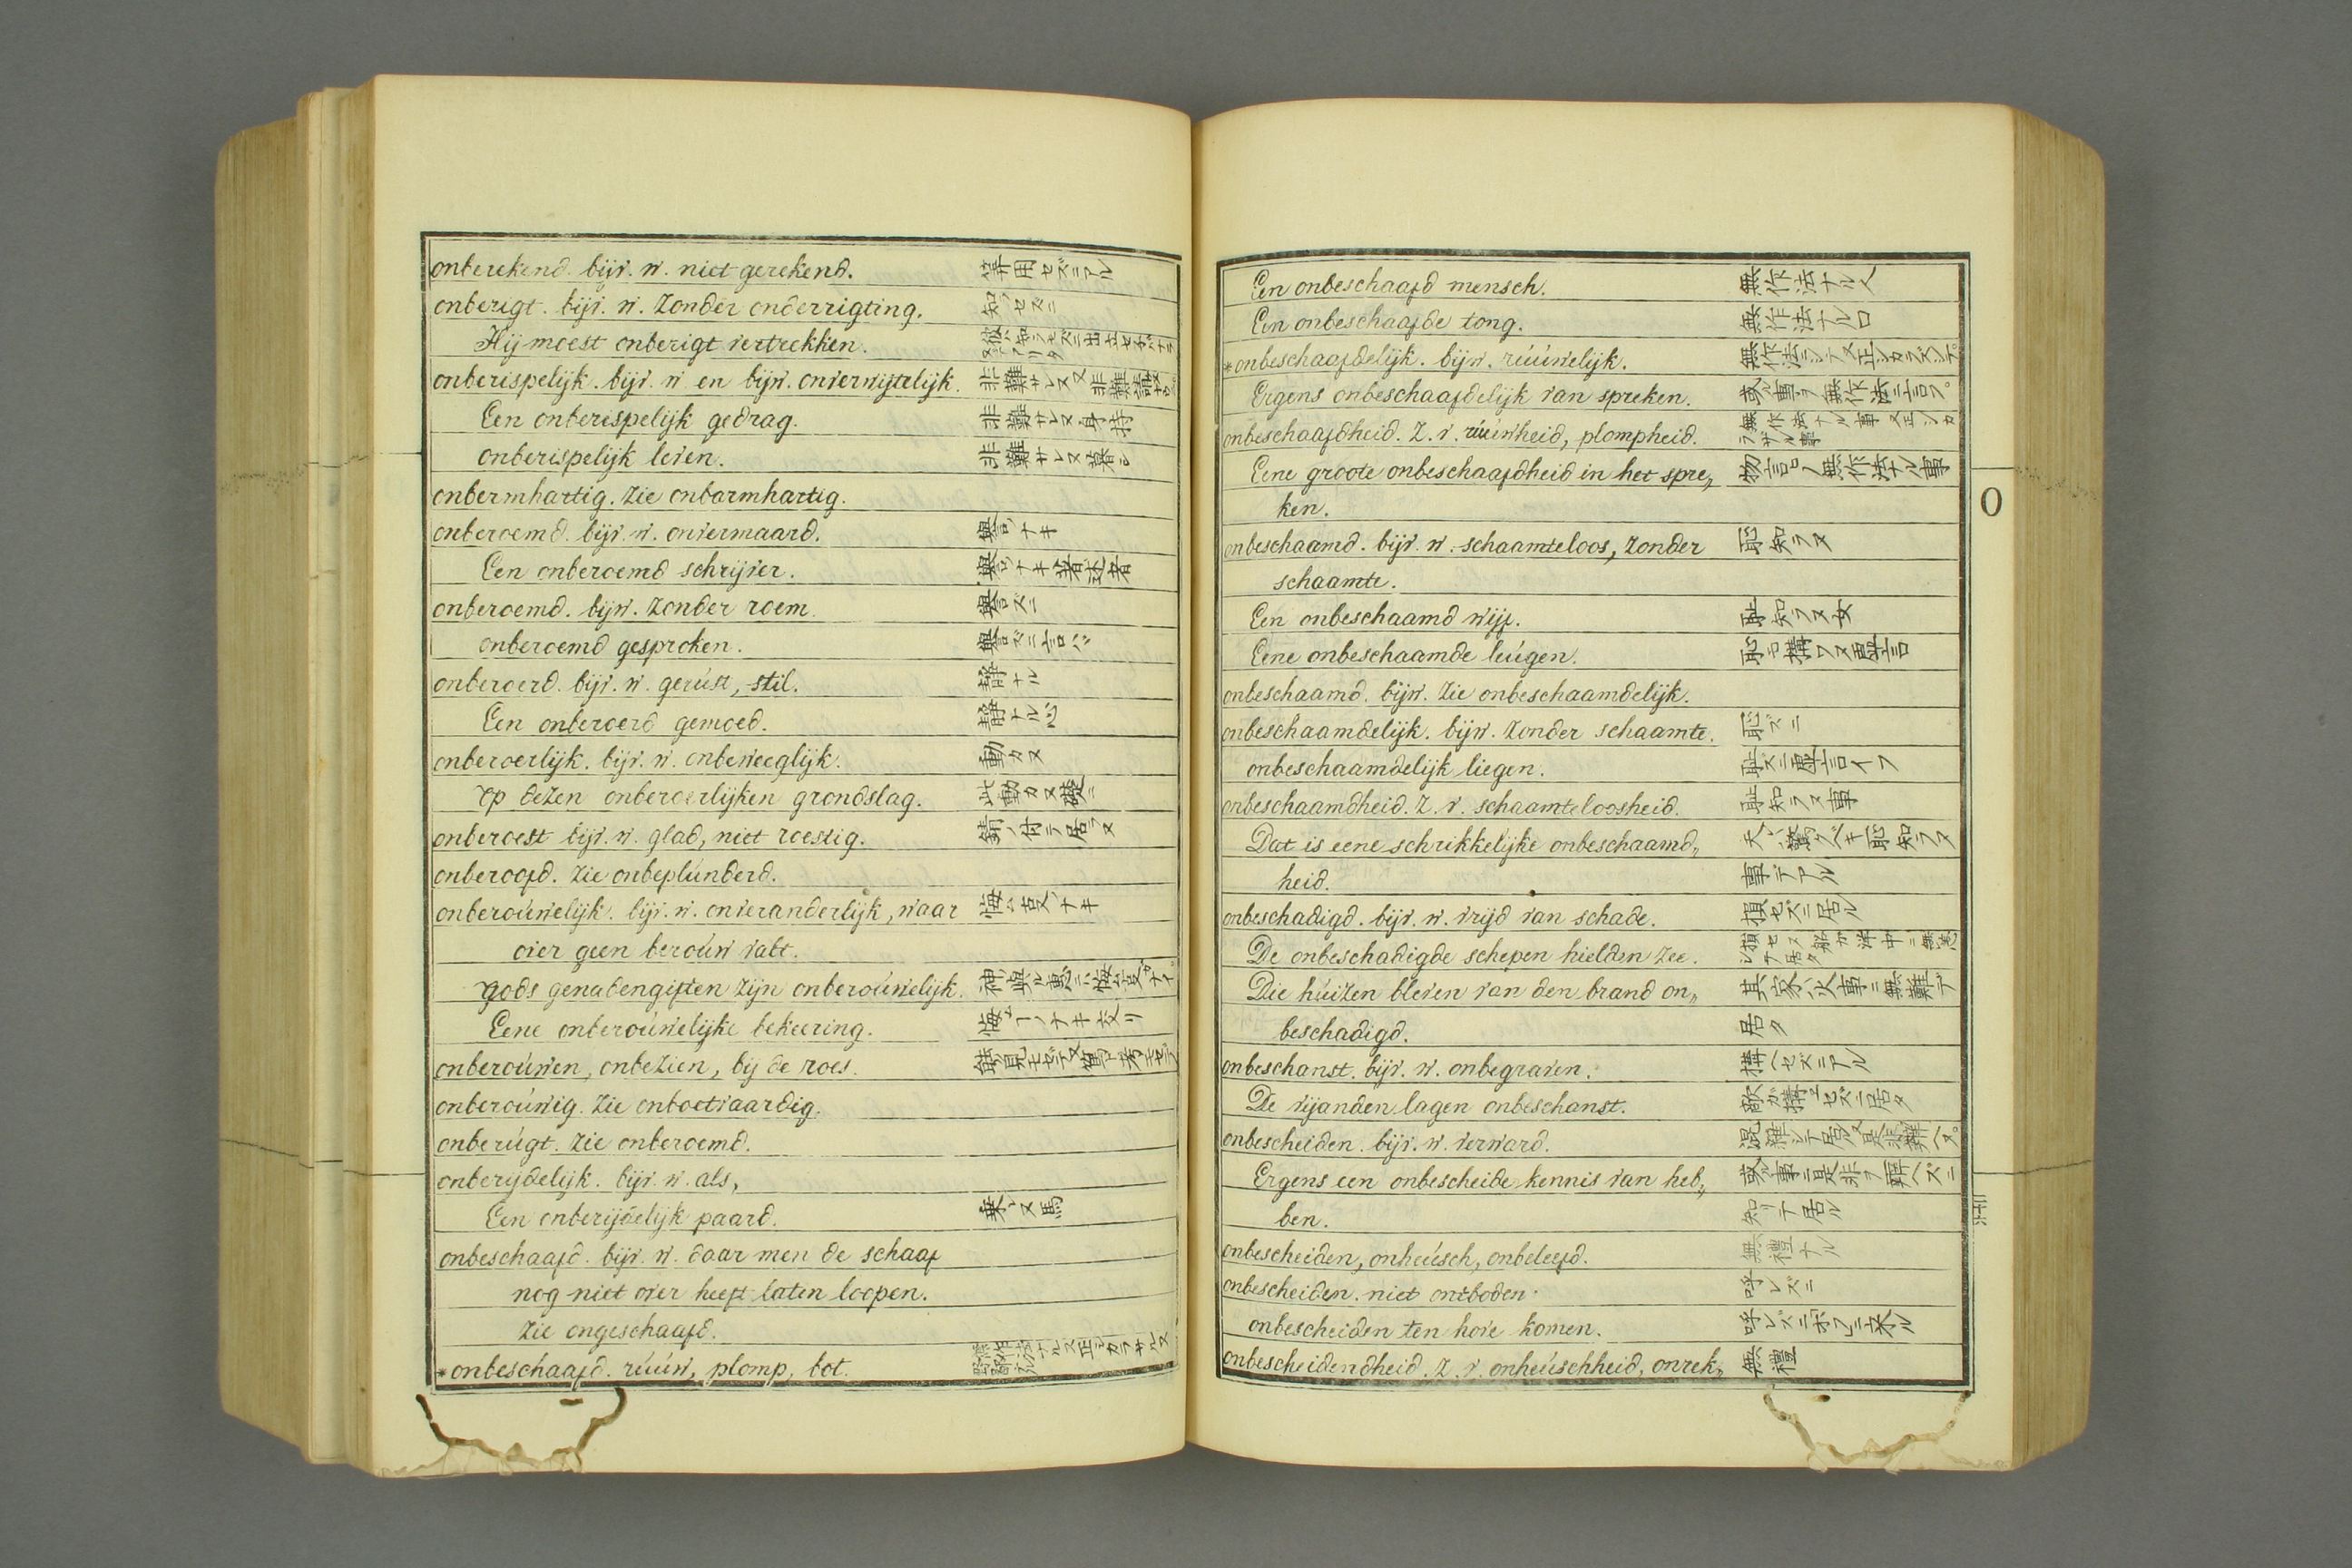 onberekend. bijv. w. niet gerekend. 筭用セズニアル
onberigt. bijv. w. zonder onderrigting. 知ラセズニ
Hij moest onberigt vertrekken.
onberispelijk. bijv. w en bijw. onverwijtelijk.
Een onberispelijk gedrag. 非難サレヌ身持
onberispelijk leven. 非難サレヌ暮シ
onbermhartig. Zie onbarmhartig.
onberoemd. bijv. w. onvermaard. 譽レナキ
Een onberoemd schrijver. 譽レナキ著述者
onberoemd. bijw. zonder roem. 譽ズニ
onberoemd gesproken. 譽ズニ言ハバ
onberoerd. bijv. w. gerúst, stil. 静ナル
Een onberoerd gemoed. 静ナル心
onberoerlijk. bijv. w. onbeweeglijk. 動カヌ
Op dezen onberoerlijken grondslag. 此動カヌ礎ニ
onberoest bijv. w. glad, niet roestig. 錆ノ付テ居ラヌ
onberoofd. Zie onbeplúnderd.
onberoúwelijk. bijv. w. onveranderlijk, waar
over geen beroúw valt.
gods genadengiften zijn onberoúwelijk.
Eene onberoúwelijke bekeering.
onberoúwen, onbezien, bij de roes.
onberoúwig. Zie onboetvaardig.
onberúgt. Zie onberoemd.
onberijdelijk. bijv. w. als,
Een onberijdelijk paard. 乗レヌ馬
onbeschaafd. bijv. w. daar men de schaaf
nog niet over heeft laten loopen.
Zie ongeschaafd.
*onbeschaafd. rúúw, plomp, bot.
Een onbeschaafd mensch. 無作法ナル人
Een onbeschaafde tong. 無作法ナル口
*onbeschaafdelijk. bijw. rúúwelijk.
Ergens onbeschaafdelijk van spreken. 或ル事ヲ無作法ニ言フ。
onbeschaafdheid. Z. v. rúúwheid, plompheid. 無作法ナル事又正シカラザル事
Eene groote onbeschaafdheid in het spre„ 物言ノ無作法ナル事
ken.
onbeschaamd. bijv. w. schaamteloos, zonder 耻知ラヌ
schaamte.
Een onbeschaamd wijf. 耻知ラヌ女
Eene onbeschaamde leúgen. 耻モ構ワヌ虚言
onbeschaamd. bijw. Zie onbeschaamdelijk.
onbeschaamdelijk. bijw. zonder schaamte. 耻ズニ
onbeschaamdelijk liegen. 耻ズニ虚言イフ
onbeschaamdheid. Z. v. schaamteloosheid. 耻知ラヌ事
Dat is eene schrikkelijke onbeschaamd„ 夫ハ驚クベキ耻知ラヌ
heid. 事デアル
onbeschadigd. bijv. w. vrijd van schade. 損ゼズニ居ル
De onbeschadigde schepen hielden zee.
Die húizen bleven van den brand on„ 其家ハ火事ニ無難デ
beschadigd. 居タ
onbeschanst. bijv. w. onbegraven. 構ヘセズニアル
De vijanden lagen onbeschanst. 敵ガ構ヱセズニ居タ
onbescheiden. bijv. w. verward.
Ergens een onbescheide kennis van heb„ 或ル事ニ是非ヲ辨ヘズニ
ben. 知リテ居ル
onbescheiden, onheúsch, onbeleefd. 無禮ナル
onbescheiden. niet ontboden. 呼レズニ
onbescheiden ten hove komen.
onbescheidendheid. Z. v. onheúschheid, onrek„ 無禮
O